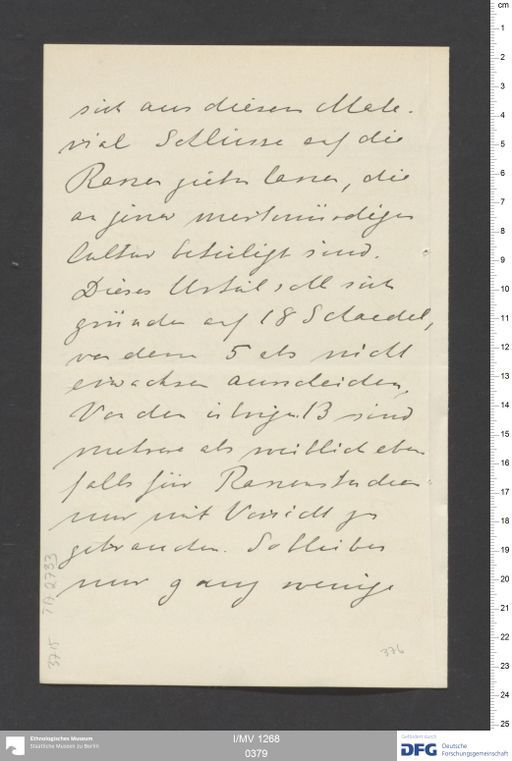 sich aus diesem Mate-
rial Schlüsse auf die
Rassen ziehen lassen, die
an jener merkwürdigen
Cultur beteiligt sind.
Dieses Urteil soll sich
gründen auf 18 Schaedel,
von denen 5 als nicht
erwachsen ausscheiden.
Von den übrigen 13 sind
mehrere als weiblich eben
falls für Rassenstudien
nur mit Vorsicht zu
gebrauchen. So bleiben
nur ganz wenige
376
3715
Ethnologisches Museum
Staatliche Museen zu Berlin
I/MV 1268
0379
Gefördert durch
DFG Deutsche
Forschungsgemeinschaft
cm
1
2
3
4
5
6
7
8
9
10
11
12
13
14
15
16
17
18
19
20
21
22
23
24
25